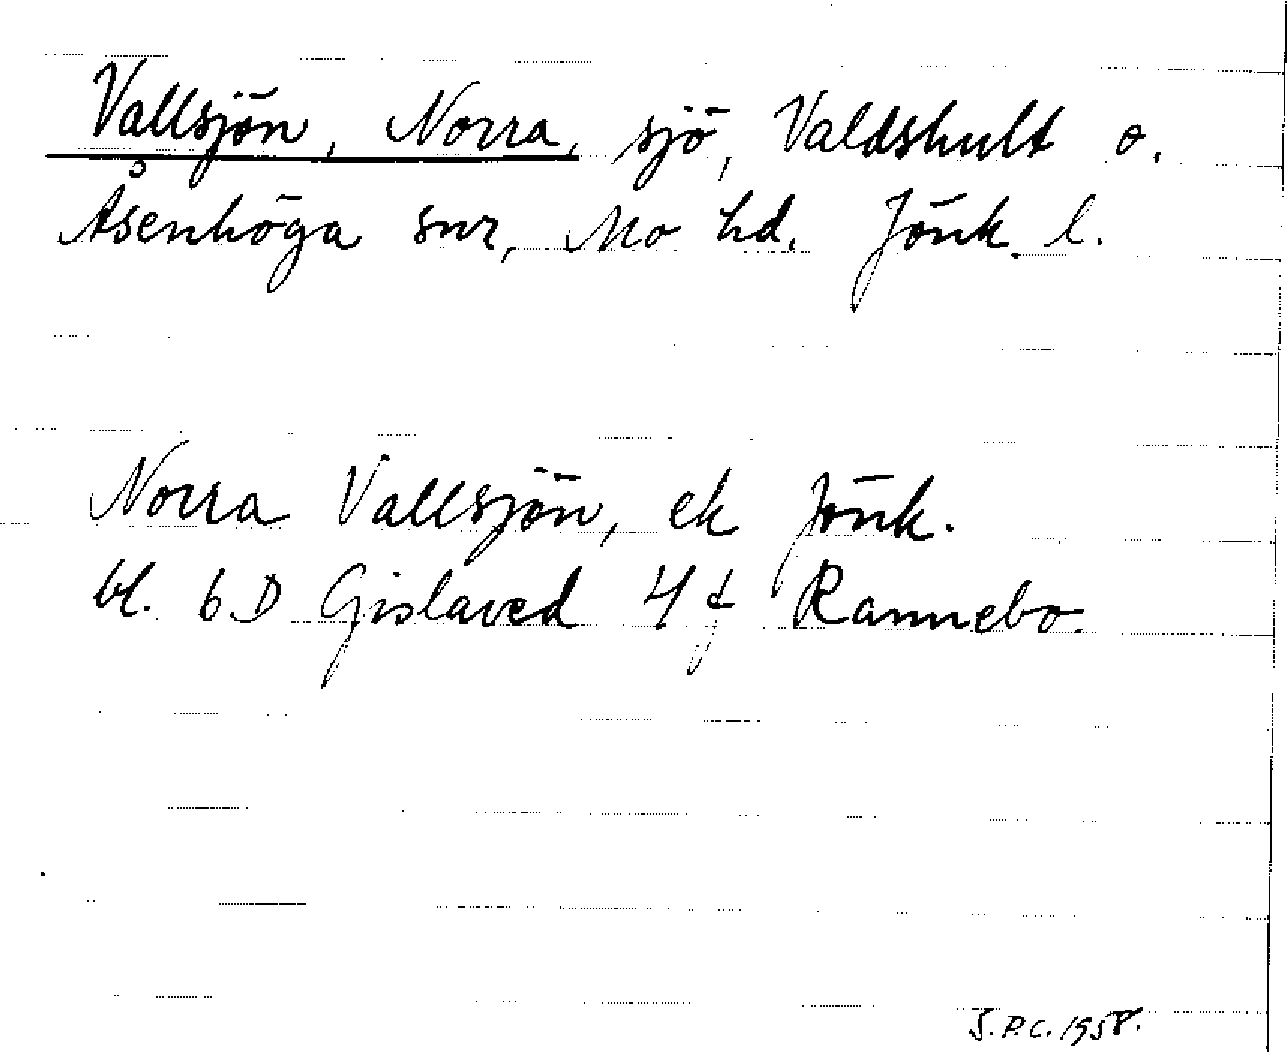 Vallsjön, Norra, sjö, Valdshult o.
Åsenhöga snr, Mo hd. Jönk. l.
Norra Vallsjön, ek Jönk.
bl. 6 D Gislaved 4 f Rannebo.
S.P.C. 1958.